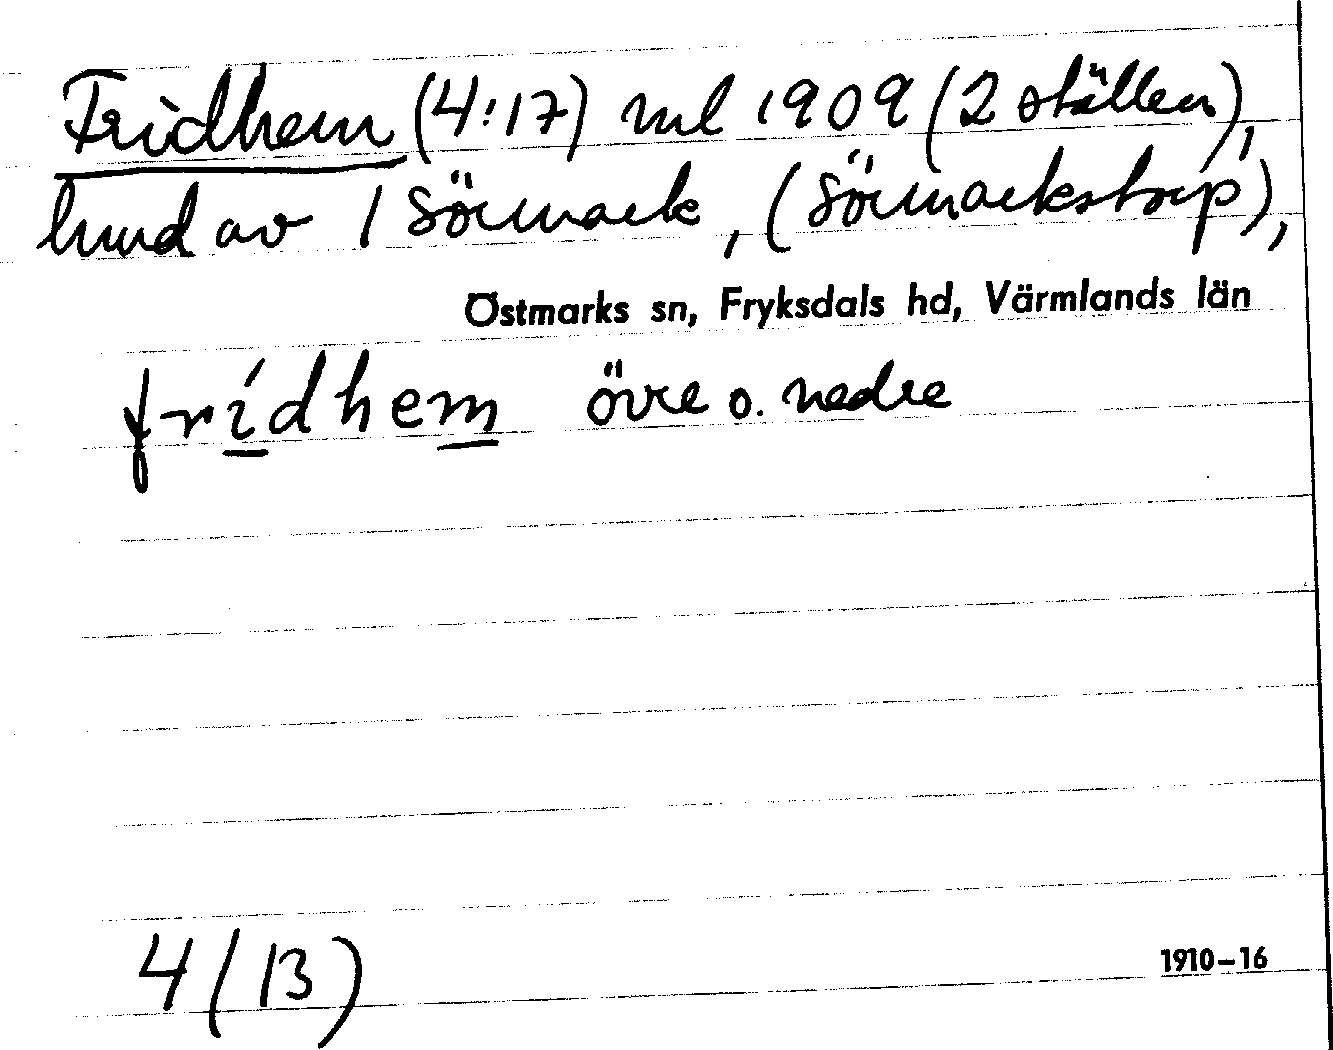 Fridhem (4:17) ml 1909 (2 ställen),
hmd av 1 Sörmark, (Sörmarkstorp),
Östmarks sn, Fryksdals hd, Värmlands län
frídhem övre o. nedre
4 (13)
1910–16